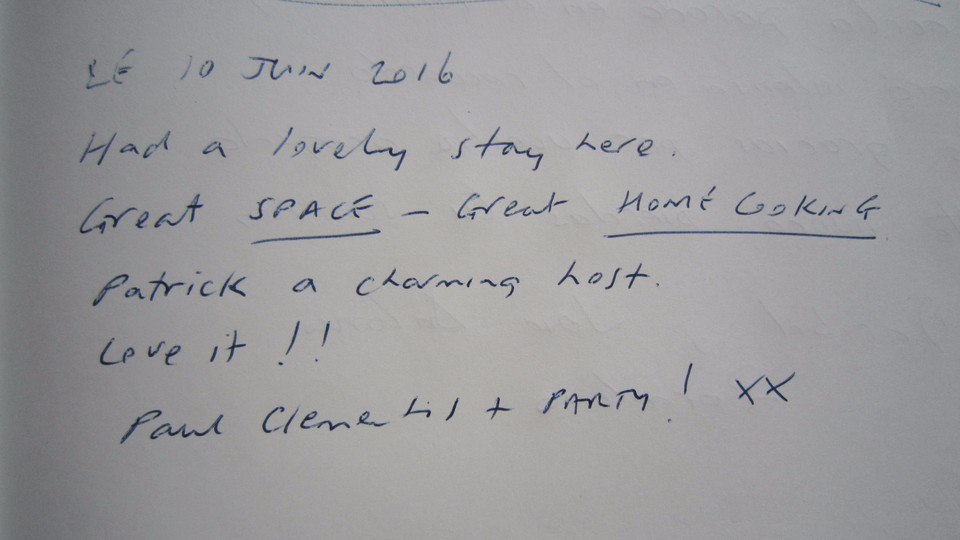 LÉ 10 JUIN 2016
Had a lovely stay here.
Great SPACE – Great HOMÉ COOKING
Patrick a charming host.
Love it !!
Paul + PARTY! XX